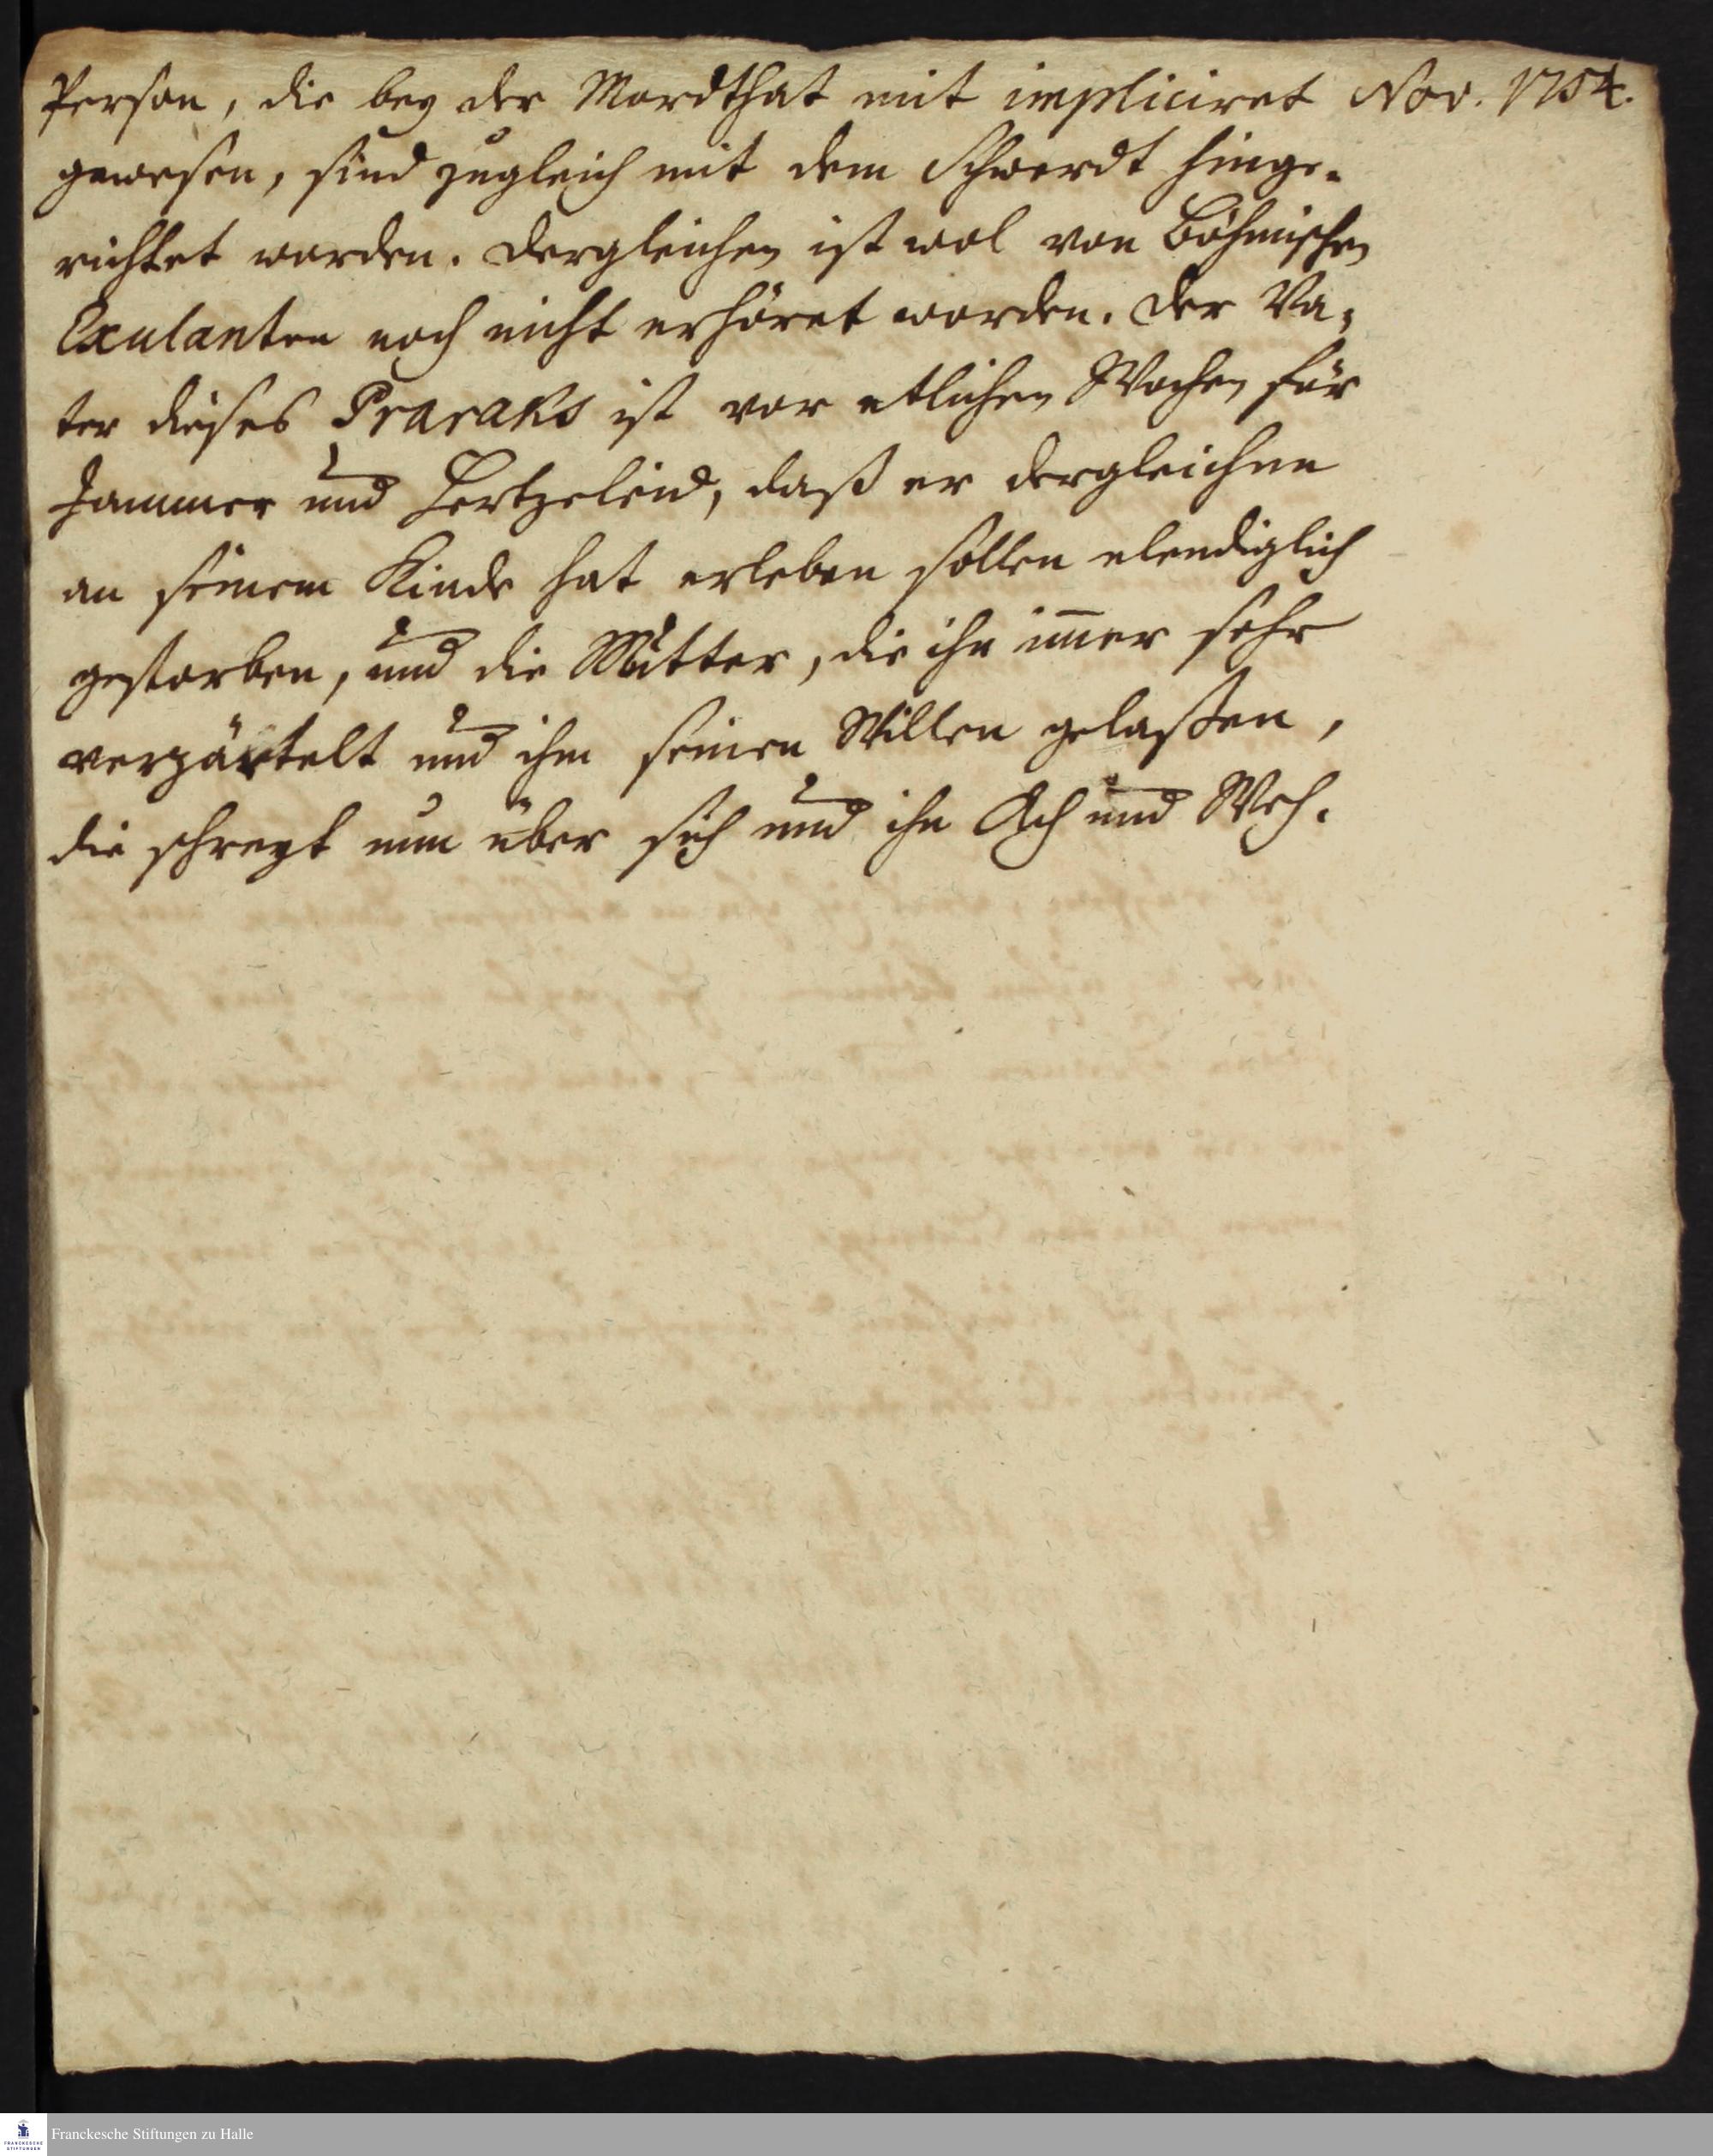 Person, die bey der Mordthat mit impliciret Nov. 1754.
gewesen, sind zugleich mit dem Schwerdt hinge-
richtet worden. Dergleichen ist wol von Böhmischen
Exulanten noch nicht erhöret worden. Der Va-
ter dieses Praraks ist vor etlichen Wochen für
Jammer und Hertzeleid, daß er dergleichen
an seinem Kinde hat erleben sollen elendiglich
gestorben, und die Mutter, die ihn im̄er sehr
verzärtelt und ihm seinen Willen gelaßen,
die schreyt nun über sich und ihn Ach und Weh.
FRANCKESCHE STIFTUNGEN
Franckesche Stiftungen zu Halle